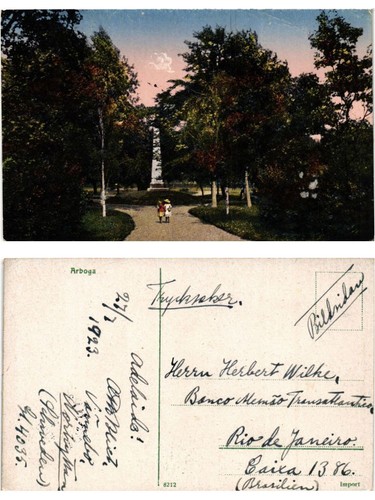 Arboga
27/2 1923.
Adelaide!
Värnsborg
(Sweden)
4/4035.
Trycksaker.
Bildsidan
Herrn Herbert Wilke,
Banco Alemão Transatlantico
Rio de Janeiro.
Caixa 1386.
(Brasilien)
6212
Import